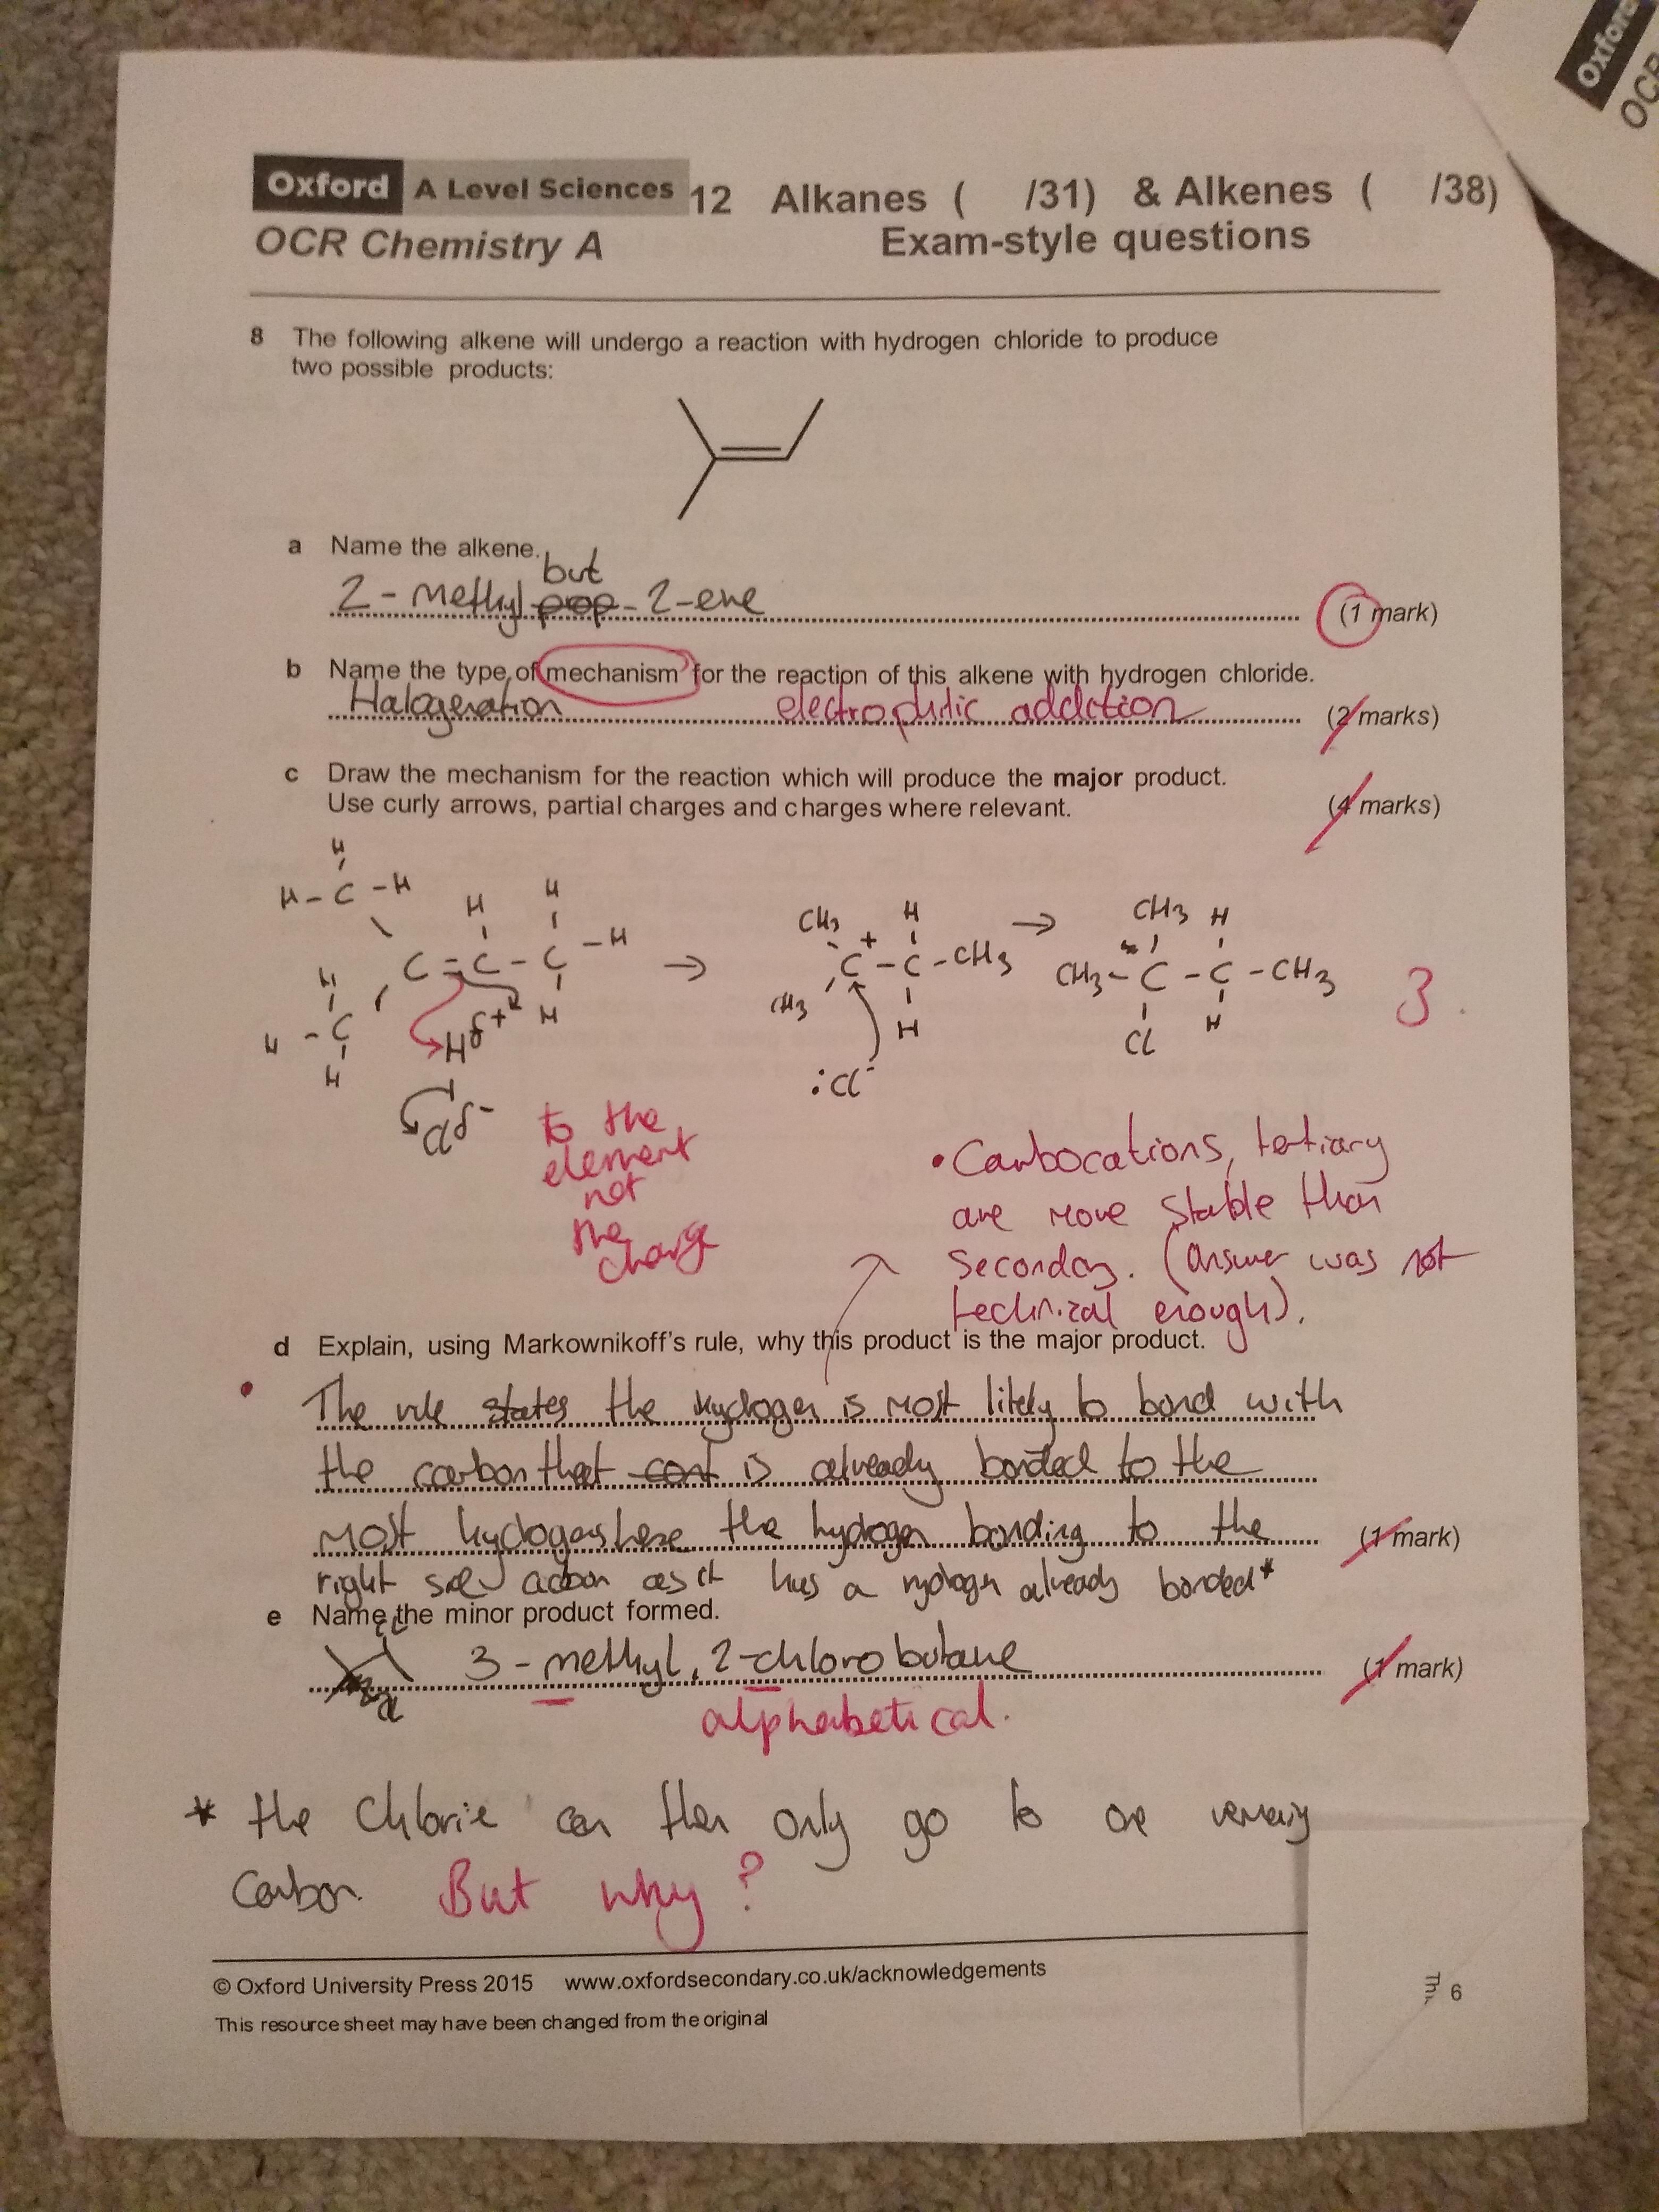 Oxford
OCR
Oxford A Level Sciences 12 Alkanes ( /31) & Alkenes ( /38)
OCR Chemistry A Exam-style questions
8 The following alkene will undergo a reaction with hydrogen chloride to produce
two possible products:
a Name the alkene.
but
2-methyl prop-2-ene (1 mark)
b Name the type of mechanism for the reaction of this alkene with hydrogen chloride.
Halogenation electrophilic addition (2 marks)
c Draw the mechanism for the reaction which will produce the major product.
Use curly arrows, partial charges and charges where relevant. (4 marks)
H
H-C-H H H CH3 H CH3 H
C=C-C-H → C+-C-CH3 → CH3-C-C-CH3 3
H H CH3 H Cl H
H-C Hδ+ :Cl-
H
Clδ-
to the
element
not
the
charge
• Carbocations, tertiary
are more stable than
secondary. (answer was not
technical enough).
d Explain, using Markownikoff's rule, why this product is the major product.
The rule states the hydrogen is most likely to bond with
the carbon that cont is already bonded to the
most hydrogens hence the hydrogen bonding to the (1 mark)
right side carbon as it has a hydrogen already bonded*
e Name the minor product formed.
3-methyl, 2-chlorobutane (1 mark)
alphabetical.
* the Chlorine can then only go to one
carbon. But why?
© Oxford University Press 2015 www.oxfordsecondary.co.uk/acknowledgements
6
This resource sheet may have been changed from the original